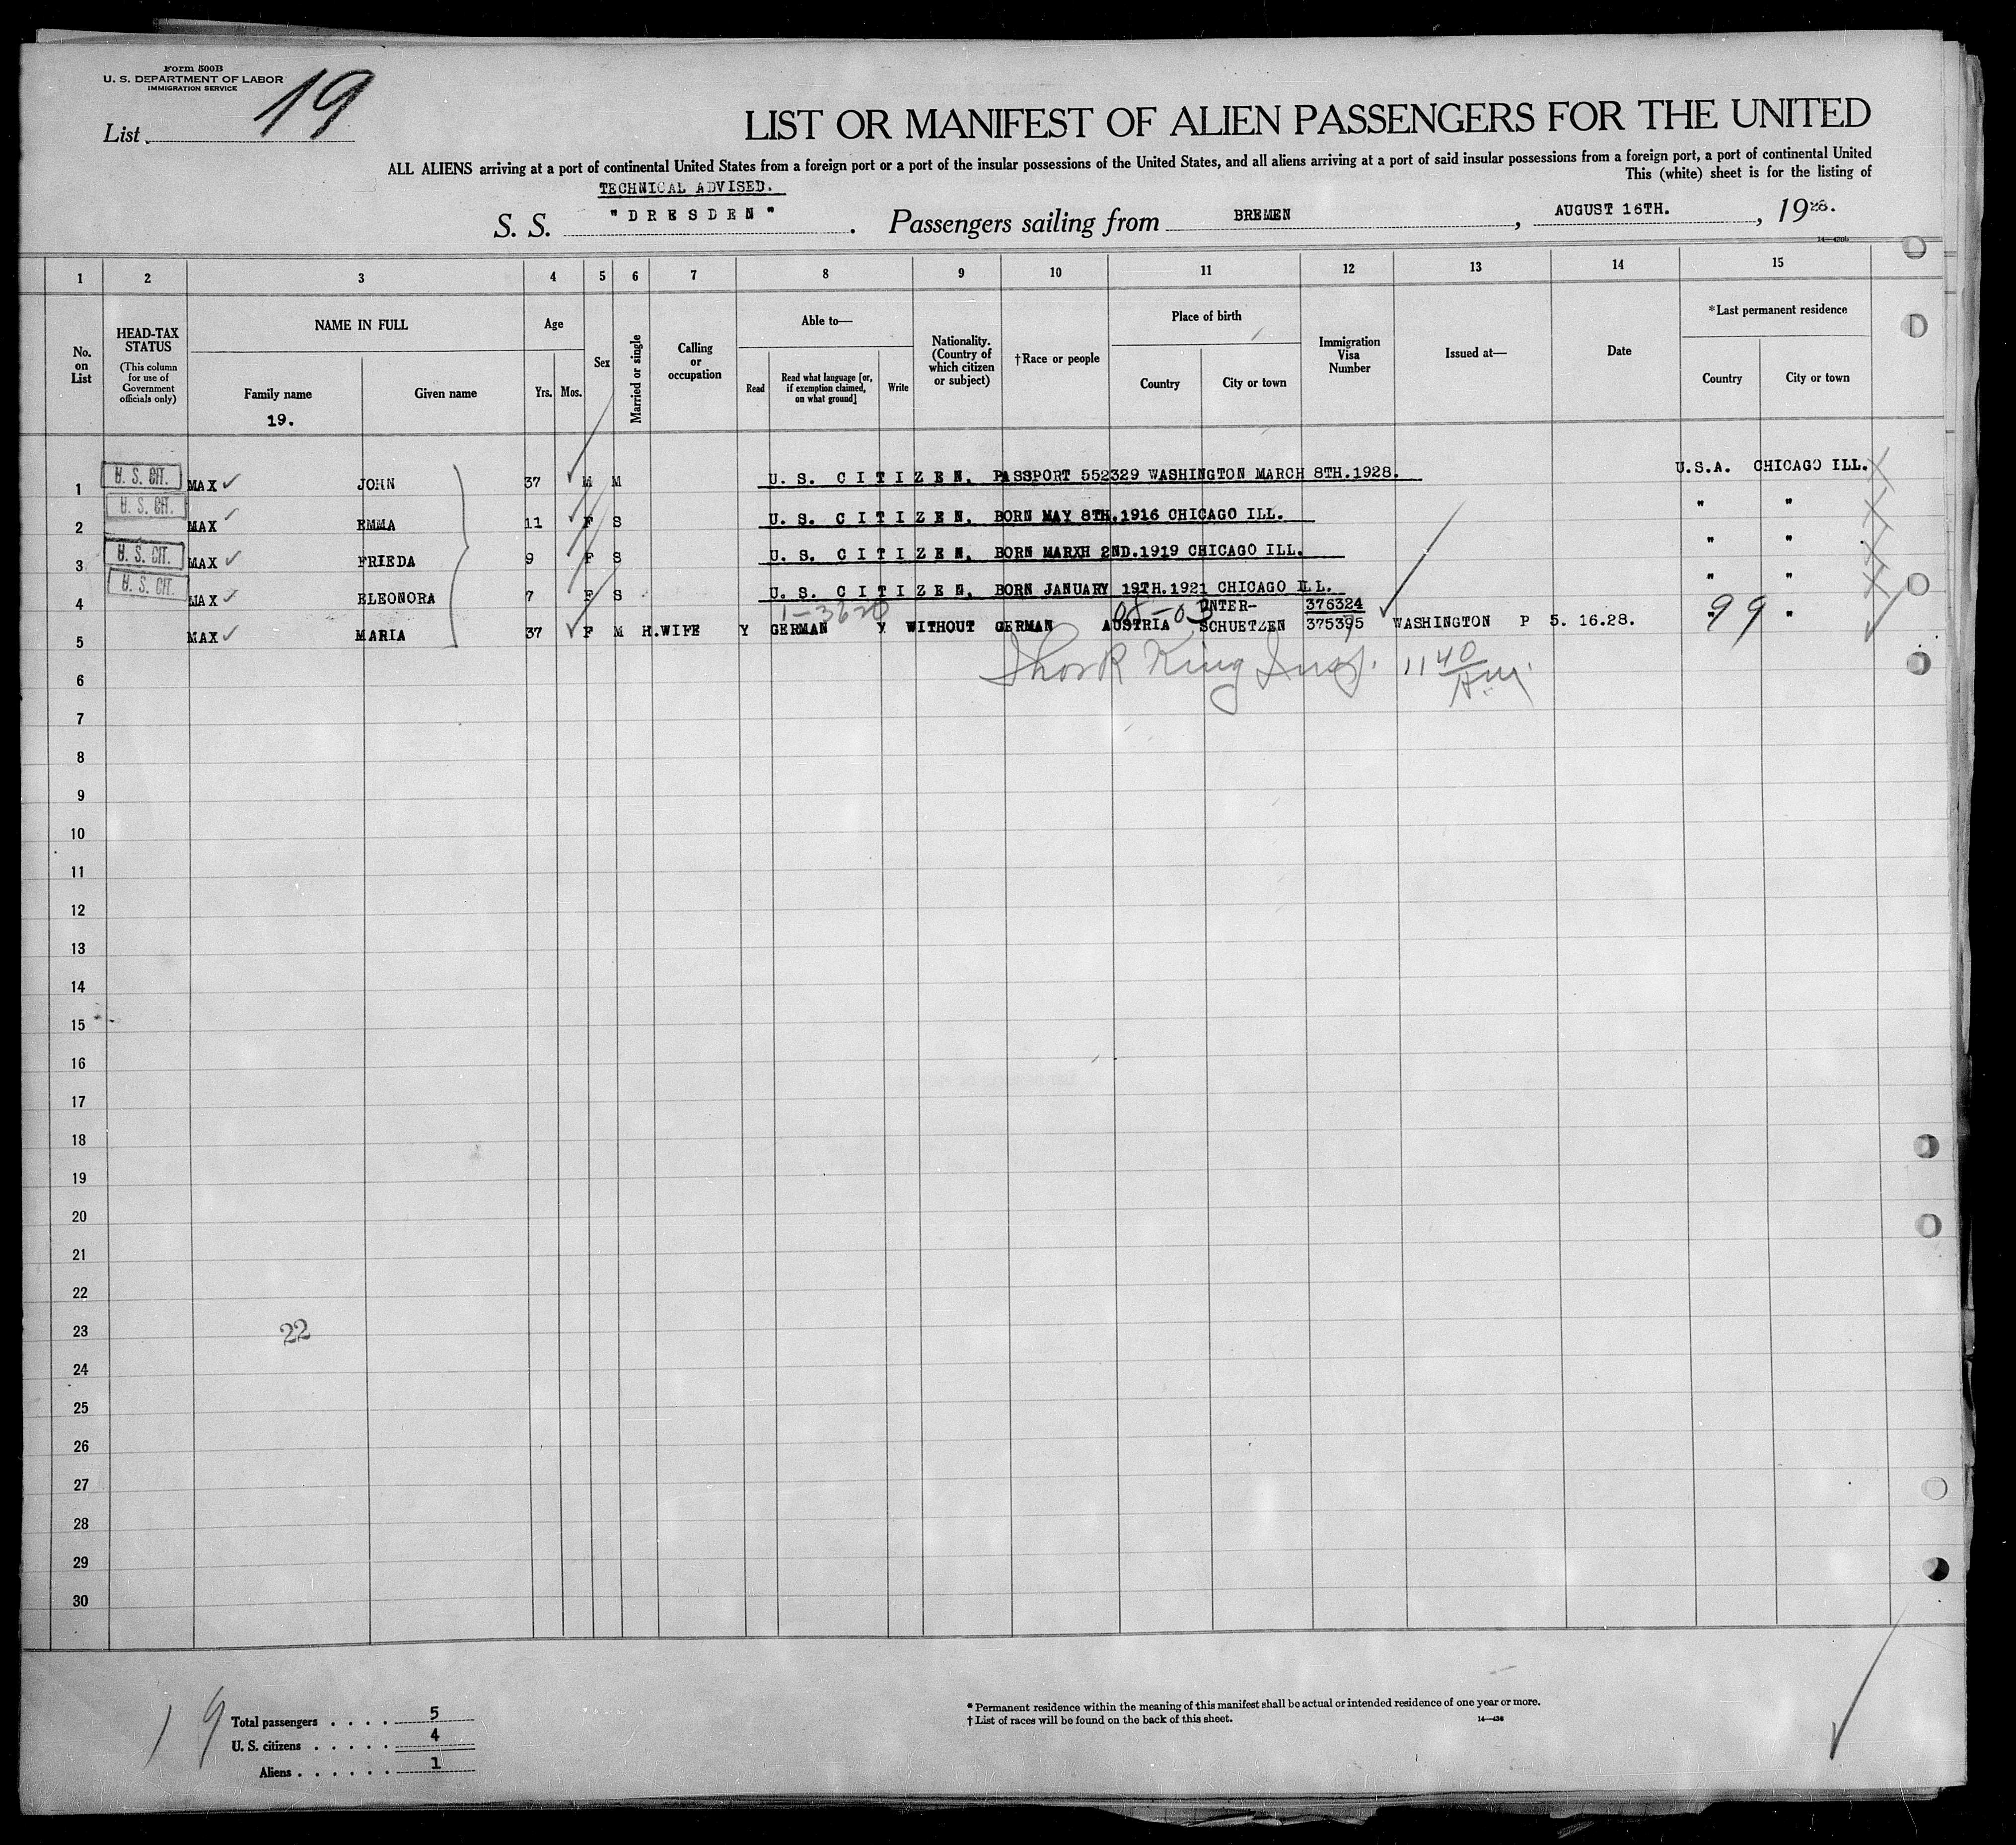 Form 500B
U. S. DEPARTMENT OF LABOR
IMMIGRATION SERVICE
List 19
LIST OR MANIFEST OF ALIEN PASSENGERS FOR THE UNITED
ALL ALIENS arriving at a port of continental United States from a foreign port or a port of the insular possessions of the United States, and all aliens arriving at a port of said insular possessions from a foreign port, a port of continental United
This (white) sheet is for the listing of
TECHNICAL ADVISED.
S. S. "DRESDEN". Passengers sailing from BREMEN, AUGUST 16TH., 1928.
1 2 3 4 5 6 7 8 9 10 11 12 13 14 15
No. on List
HEAD-TAX STATUS
(This column for use of Government officials only)
NAME IN FULL
Family name
19.
Given name
Age
Yrs. Mos.
Sex
Married or single
Calling or occupation
Able to—
Read
Read what language [or, if exemption claimed, on what ground]
Write
Nationality. (Country of which citizen or subject)
†Race or people
Place of birth
Country
City or town
Immigration Visa Number
Issued at—
Date
*Last permanent residence
Country
City or town
1 U. S. CIT. MAX JOHN 37 M M U. S. CITIZEN, PASSPORT 552329 WASHINGTON MARCH 8TH.1928. U.S.A. CHICAGO ILL.
2 U. S. CIT. MAX EMMA 11 F S U. S. CITIZEN, BORN MAY 8TH.1916 CHICAGO ILL. " "
3 U. S. CIT. MAX FRIEDA 9 F S U. S. CITIZEN, BORN MARXH 2ND.1919 CHICAGO ILL. " "
4 U. S. CIT. MAX ELEONORA 7 F S U. S. CITIZEN, BORN JANUARY 19TH.1921 CHICAGO ILL. " "
1-3620 UNTER- 376324
5 MAX MARIA 37 F M H.WIFE Y GERMAN Y WITHOUT GERMAN AUSTRIA SCHUETZEN 375395 WASHINGTON P 5. 16.28. " 99 "
6 King Insp. 11 40 AM
7
8
9
10
11
12
13
14
15
16
17
18
19
20
21
22
23 22
24
25
26
27
28
29
30
19
Total passengers . . . . 5
U. S. citizens . . . . . 4
Aliens . . . . . . 1
* Permanent residence within the meaning of this manifest shall be actual or intended residence of one year or more.
† List of races will be found on the back of this sheet.